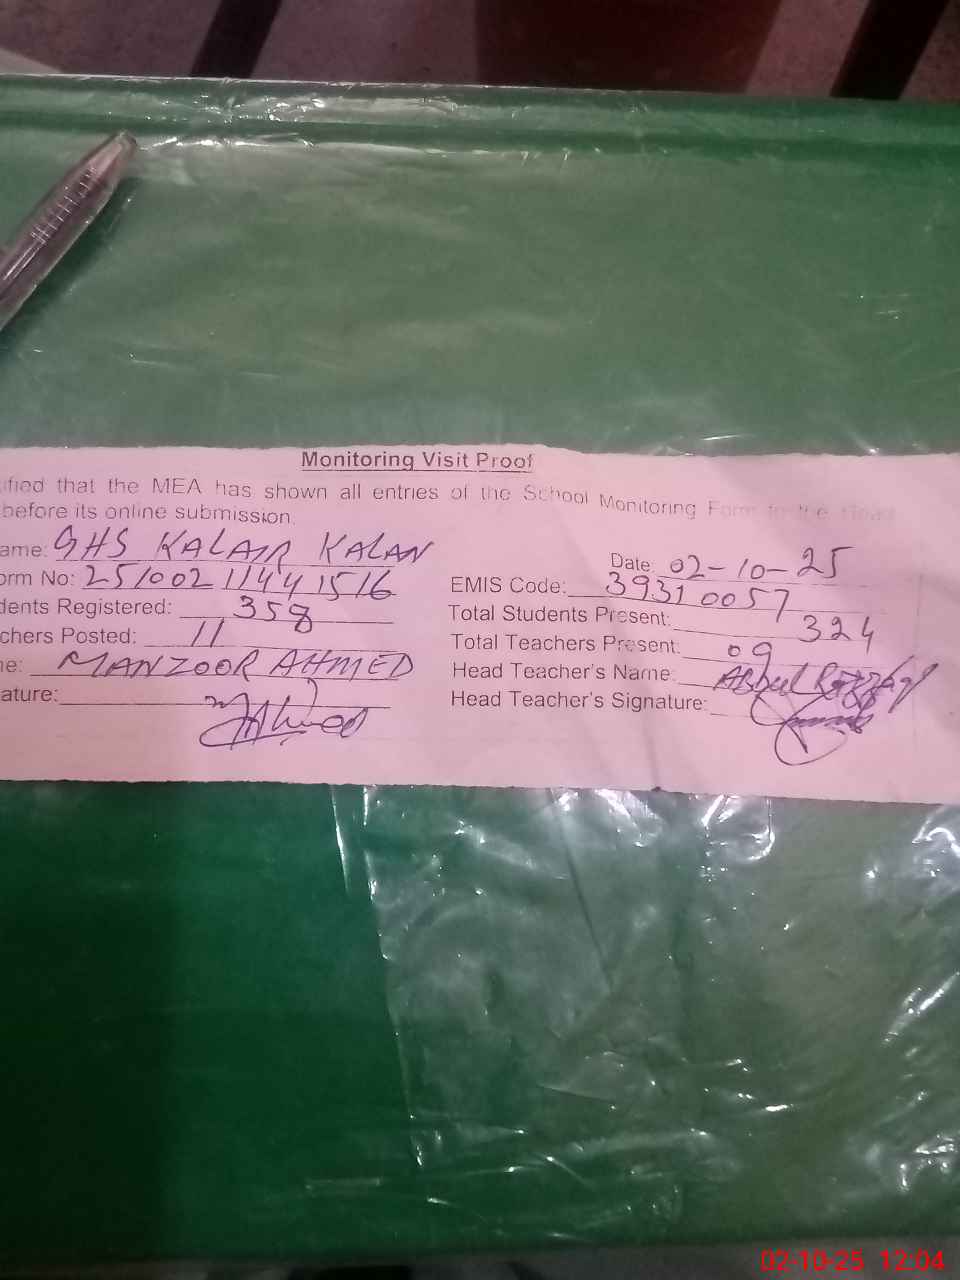 Monitoring Visit Proof
ified that the MEA has shown all entries of the School Monitoring Form to the Head
before its online submission.
ame: GHS KALAIR KALAN
Date: 02-10-25
orm No: 25100211441516
EMIS Code: 39310057
dents Registered: 358
Total Students Present: 324
chers Posted: 11
Total Teachers Present: 09
ne: MANZOOR AHMED
Head Teacher's Name: Abdul Razzaq
ature:
Head Teacher's Signature:
02-10-25 12:04